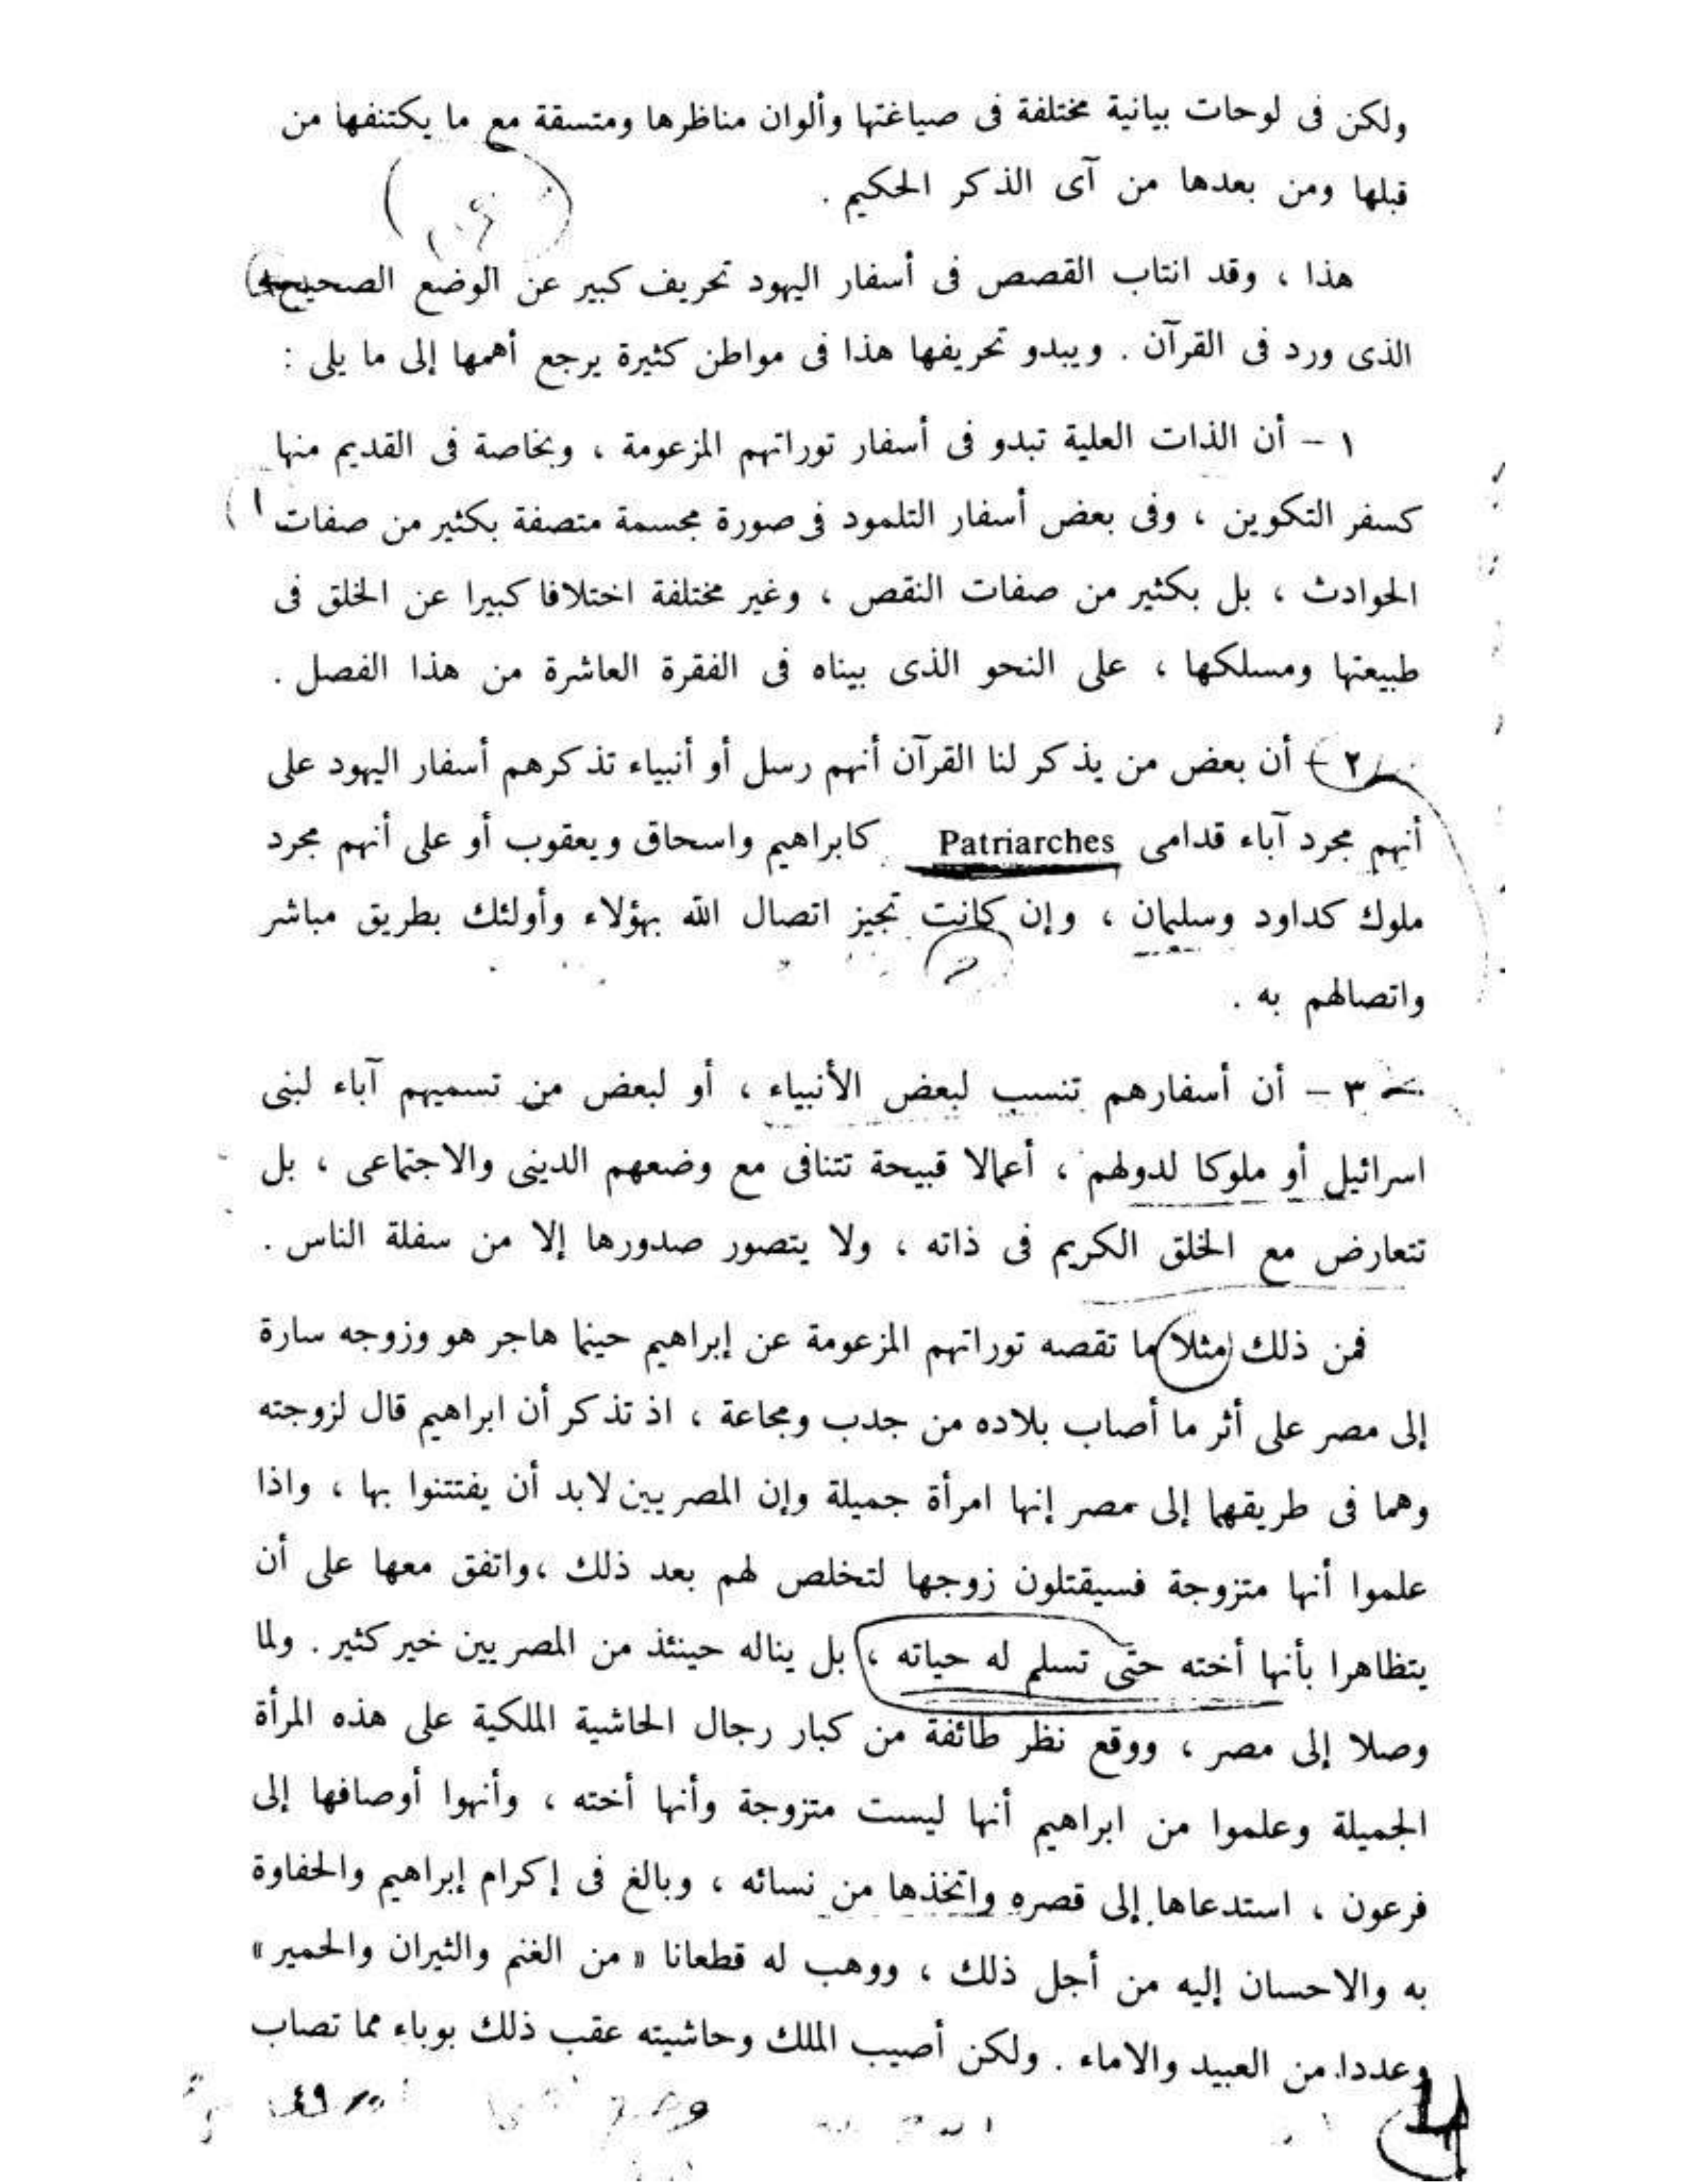 ولكن فى لوحات بيانية مختلفة فى صياغتها وألوان مناظرها ومتسقة مع ما يكتنفها من
قبلها ومن بعدها من آى الذكر الحكيم .
هذا ، وقد انتاب القصص فى أسفار اليهود تحريف كبير عن الوضع الصحيح
الذى ورد فى القرآن . ويبدو تحريفها هذا فى مواطن كثيرة يرجع أهمها إلى ما يلى :
١ – أن الذات العلية تبدو فى أسفار توراتهم المزعومة ، وبخاصة فى القديم منها
كسفر التكوين ، وفى بعض أسفار التلمود فى صورة مجسمة متصفة بكثير من صفات
الحوادث ، بل بكثير من صفات النقص ، وغير مختلفة اختلافا كبيرا عن الخلق فى
طبيعتها ومسلكها ، على النحو الذى بيناه فى الفقرة العاشرة من هذا الفصل .
٢ – أن بعض من يذكر لنا القرآن أنهم رسل أو أنبياء تذكرهم أسفار اليهود على
أنهم مجرد آباء قدامى Patriarches كابراهيم واسحاق ويعقوب أو على أنهم مجرد
ملوك كداود وسليمان ، وإن كانت تجيز اتصال الله بهؤلاء وأولئك بطريق مباشر
واتصالهم به .
٣ – أن أسفارهم تنسب لبعض الأنبياء ، أو لبعض من تسميهم آباء لبنى
اسرائيل أو ملوكا لدولهم ، أعمالا قبيحة تتنافى مع وضعهم الدينى والاجتماعى ، بل
تتعارض مع الخلق الكريم فى ذاته ، ولا يتصور صدورها إلا من سفلة الناس .
فمن ذلك مثلا ما تقصه توراتهم المزعومة عن إبراهيم حينما هاجر هو وزوجه سارة
إلى مصر على أثر ما أصاب بلاده من جدب ومجاعة ، اذ تذكر أن ابراهيم قال لزوجته
وهما فى طريقهما إلى مصر إنها امرأة جميلة وإن المصريين لابد أن يفتتنوا بها ، واذا
علموا أنها متزوجة فسيقتلون زوجها لتخلص لهم بعد ذلك ،واتفق معها على أن
يتظاهرا بأنها أخته حتى تسلم له حياته ، بل يناله حينئذ من المصريين خير كثير . ولما
وصلا إلى مصر ، ووقع نظر طائفة من كبار رجال الحاشية الملكية على هذه المرأة
الجميلة وعلموا من ابراهيم أنها ليست متزوجة وأنها أخته ، وأنهوا أوصافها إلى
فرعون ، استدعاها إلى قصره واتخذها من نسائه ، وبالغ فى إكرام إبراهيم والحفاوة
به والاحسان إليه من أجل ذلك ، ووهب له قطعانا « من الغنم والثيران والحمير »
وعددا من العبيد والاماء . ولكن أصيب الملك وحاشيته عقب ذلك بوباء مما تصاب
٤٩